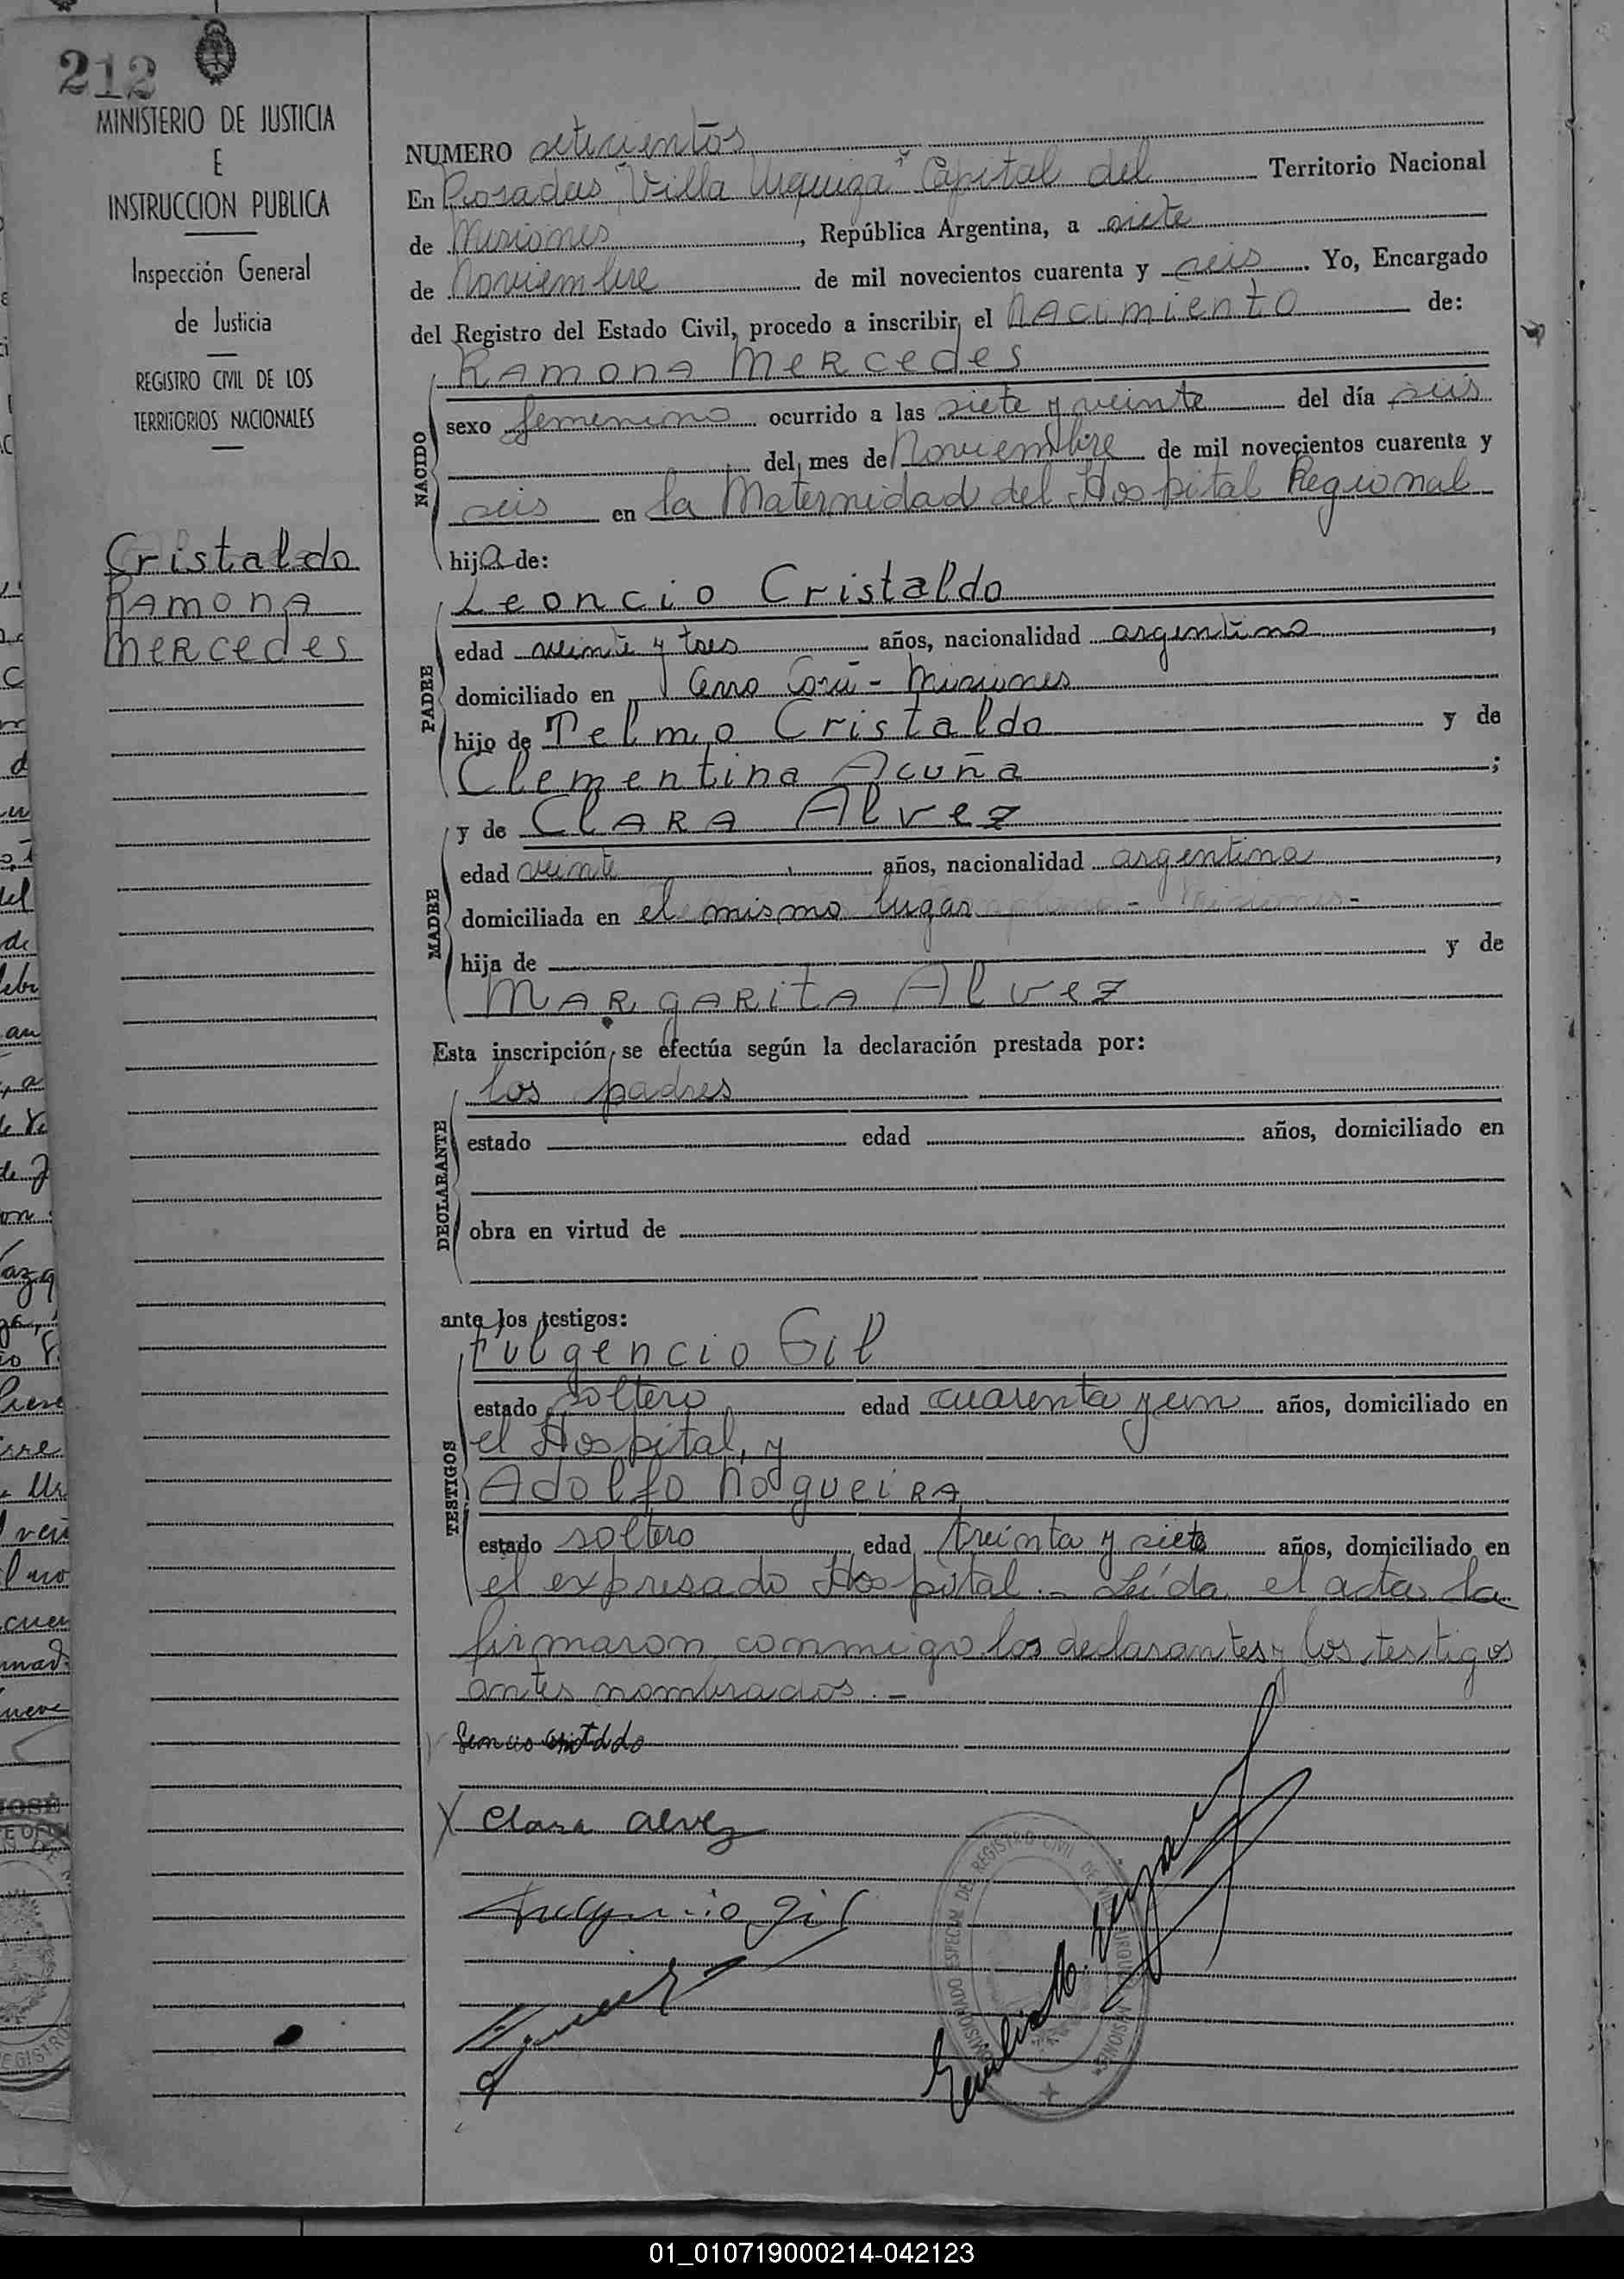 212
MINISTERIO DE JUSTICIA
E
INSTRUCCION PUBLICA
Inspección General
de Justicia
REGISTRO CIVIL DE LOS
TERRITORIOS NACIONALES
Cristaldo
Ramona
Mercedes
NUMERO setecientos
En Posadas "Villa Urquiza" Capital del Territorio Nacional
de Misiones, República Argentina, a siete
de Noviembre de mil novecientos cuarenta y seis. Yo, Encargado
del Registro del Estado Civil, procedo a inscribir el nacimiento de:
Ramona Mercedes
NACIDO
sexo femenino ocurrido a las siete y veinte del día seis
del mes de Noviembre de mil novecientos cuarenta y
seis en la Maternidad del Hospital Regional
hija de:
Leoncio Cristaldo
PADRE
edad veinte y tres años, nacionalidad argentino,
domiciliado en Cerro Corá - Misiones
hijo de Telmo Cristaldo y de
Clementina Acuña;
y de Clara Alvez
MADRE
edad veinte años, nacionalidad argentina,
domiciliada en el mismo lugar
hija de y de
Margarita Alvez
Esta inscripción se efectúa según la declaración prestada por:
los padres
DECLARANTE
estado edad años, domiciliado en
obra en virtud de
ante los testigos:
Fulgencio Gil
TESTIGOS
estado soltero edad cuarenta y un años, domiciliado en
el Hospital, y
Adolfo Nogueira
estado soltero edad treinta y siete años, domiciliado en
el expresado Hospital.- Leída el acta la
firmaron conmigo los declarantes y los testigos
antes nombrados.-
X Clara Alvez
Fulgencio Gil
REGISTRO CIVIL
01_010719000214-042123